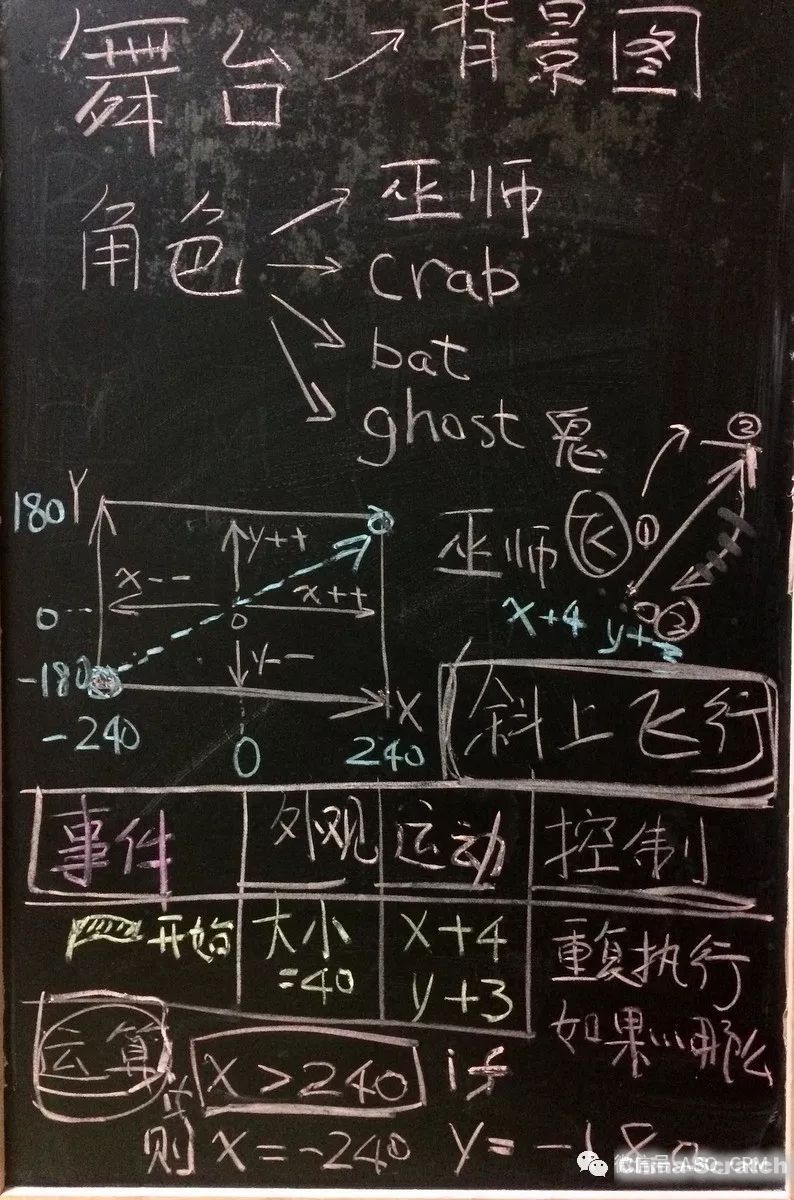 舞台 → 背景图
角色 → 巫师
→ crab
→ bat
→ ghost 鬼
②
巫师 飞 ①
③
x+4 y+3
180 Y
y++
x-- x++
0 0
y--
-180
X
-240 0 240
斜上飞行
事件 外观 运动 控制
开始 大小=40 x+4 y+3 重复执行
如果…那么
运算 x>240 if
则 x=-240 y=-180
微信号: ASO_CRM
China-Scratch